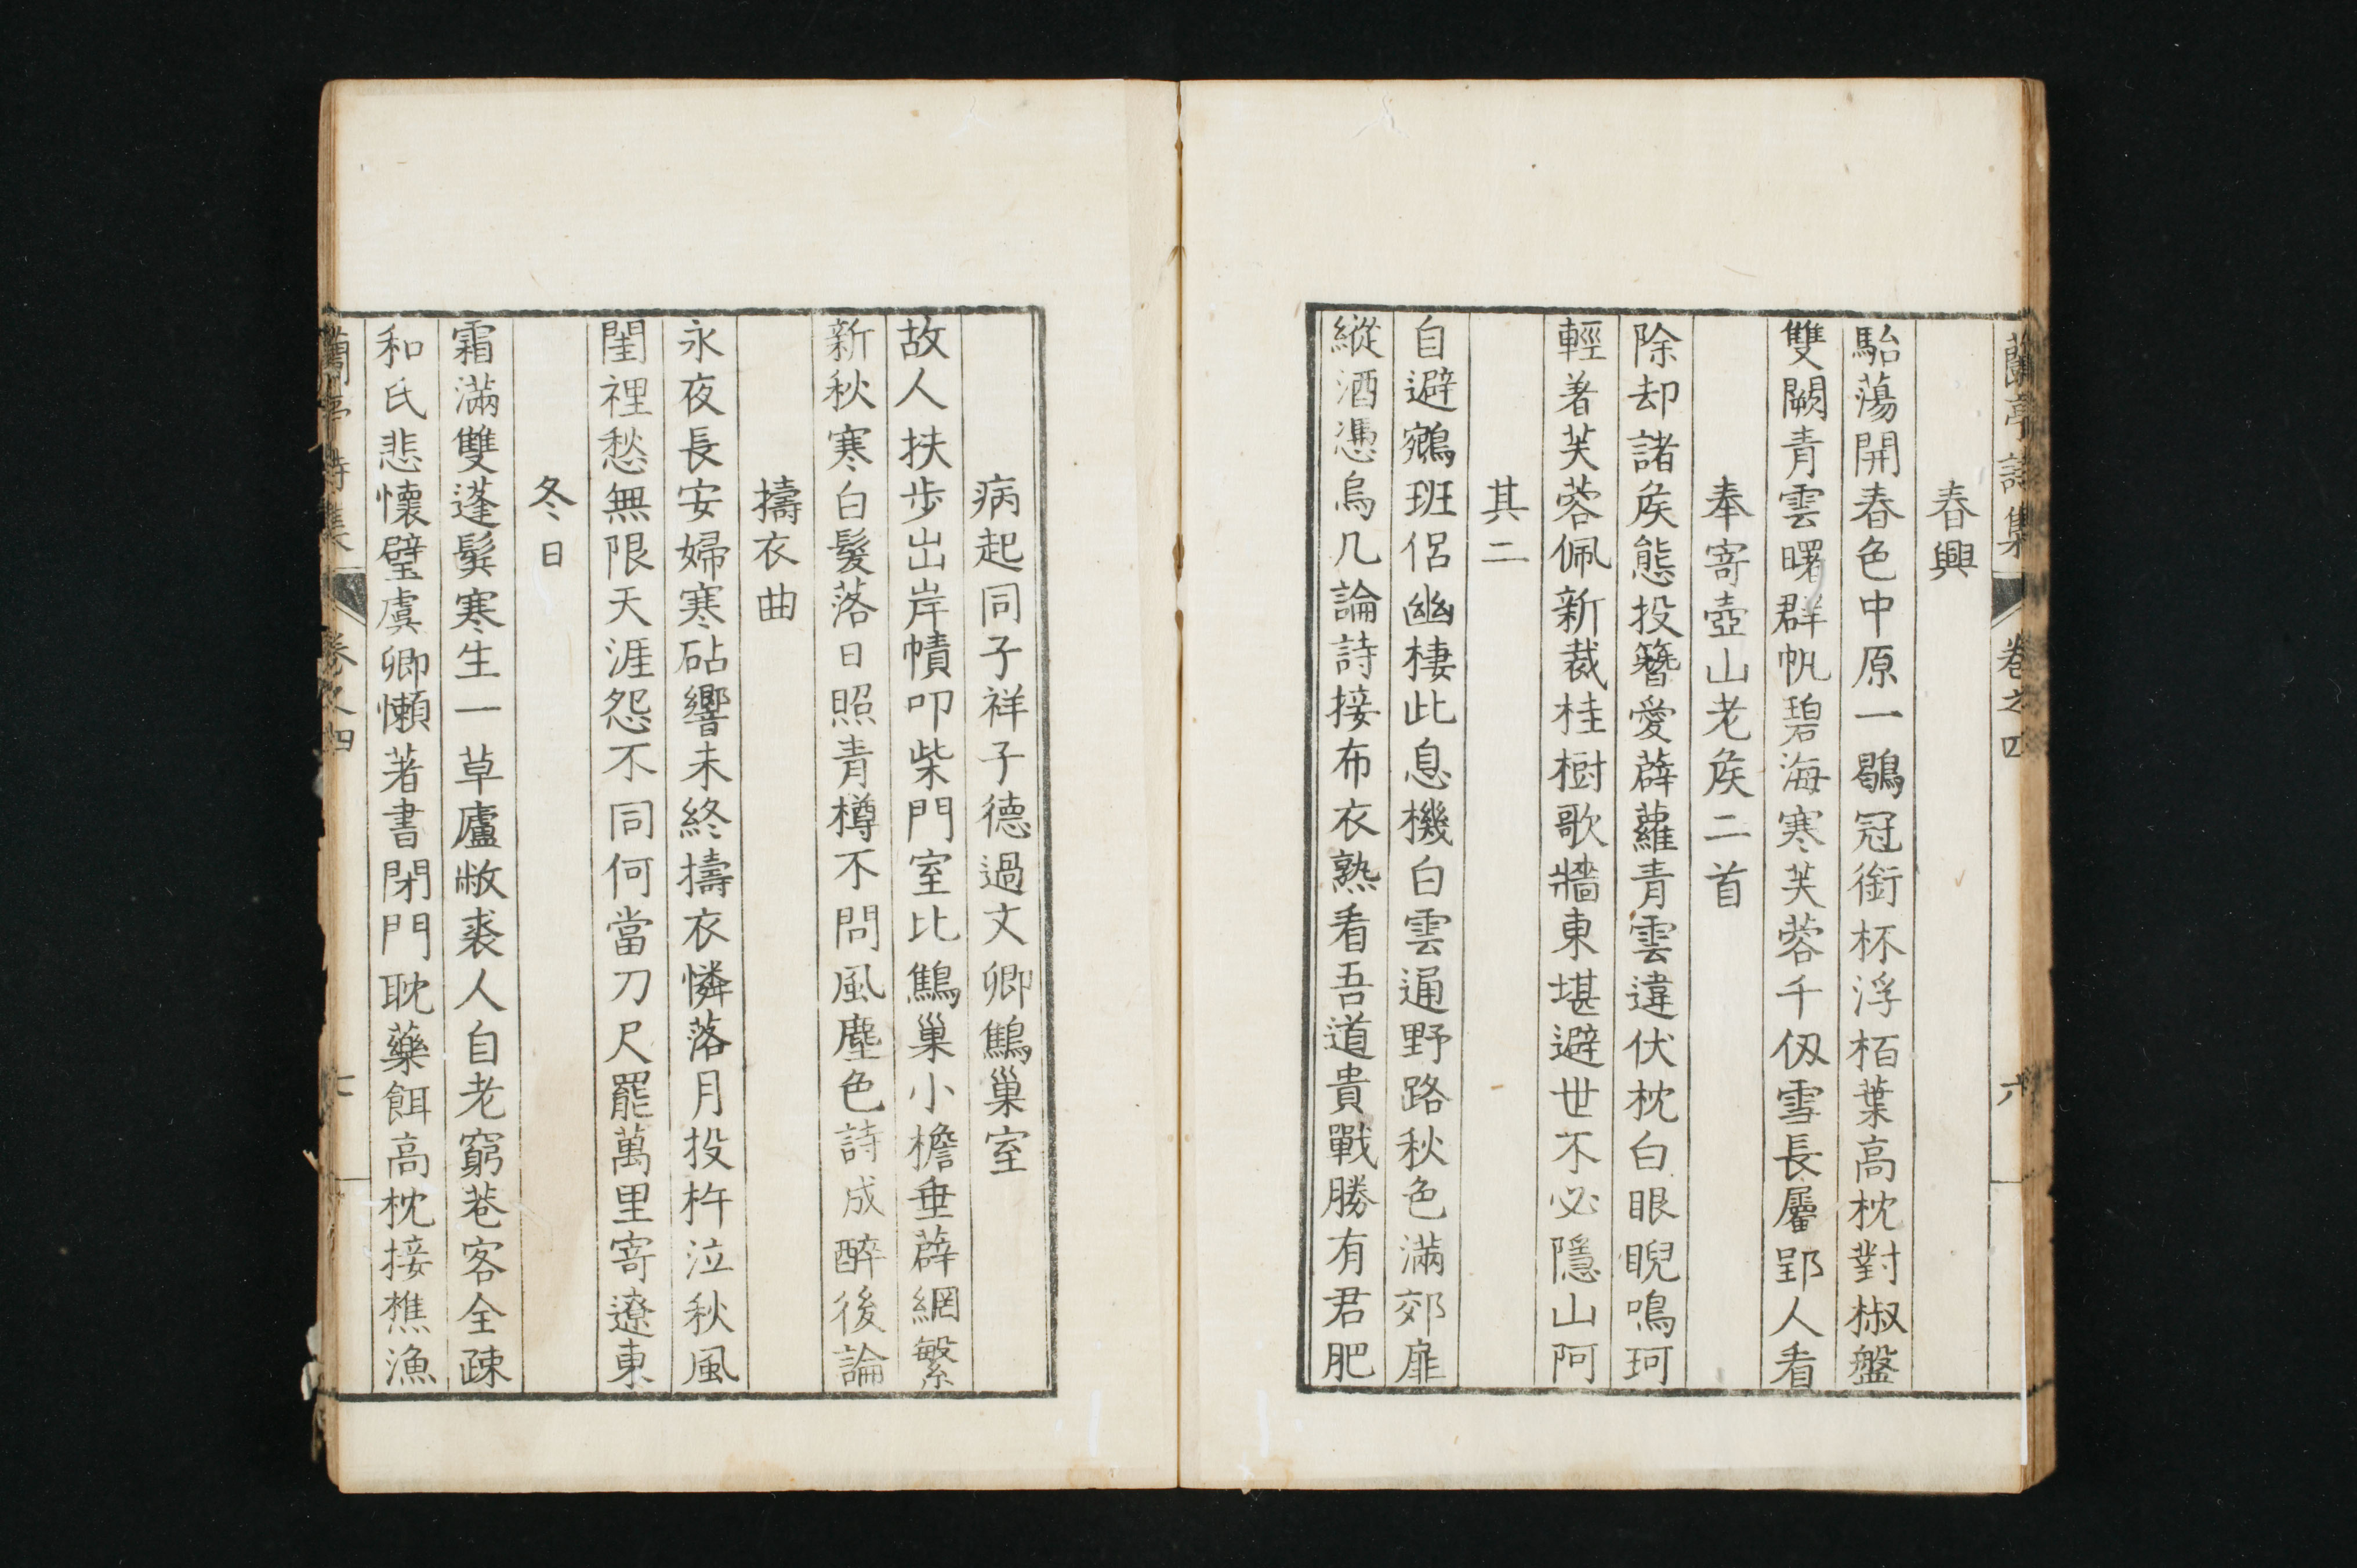 蘭亭詩集 卷之四 六
春興
駘蕩開春色中原一鶡冠銜杯浮栢葉高枕對椒盤
雙闕青雲曙群帆碧海寒芙蓉千仭雪長屬郢人看
奉寄壺山老矦二首
除却諸矦態投簪愛薜蘿青雲違伏枕白眼睨鳴珂
輕著芙蓉佩新裁桂樹歌牆東堪避世不必隱山阿
其二
自避鵷班侶幽棲此息機白雲通野路秋色滿郊扉
縱酒憑烏几論詩接布衣熟看吾道貴戰勝有君肥
病起同子祥子德過文卿鷦巢室
故人扶步出岸幘叩柴門室比鷦巢小檐垂薜網繁
新秋寒白髮落日照青樽不問風塵色詩成醉後論
擣衣曲
永夜長安婦寒砧響未終擣衣憐落月投杵泣秋風
閨裡愁無限天涯怨不同何當刀尺罷萬里寄遼東
冬日
霜滿雙蓬鬂寒生一草廬敝裘人自老窮巷客全疎
和氏悲懷璧虞卿懶著書閉門耽藥餌高枕接樵漁
蘭亭詩集 卷之四 七